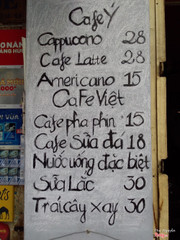 Cafe Ý
Cappuccono 28
Cafe Latte 28
Americano 15
Cafe Việt
Cafe pha phin 15
Cafe Sữa đá 18
Nước uống đặc biệt
Sữa Lắc 30
Trái cây xay 30